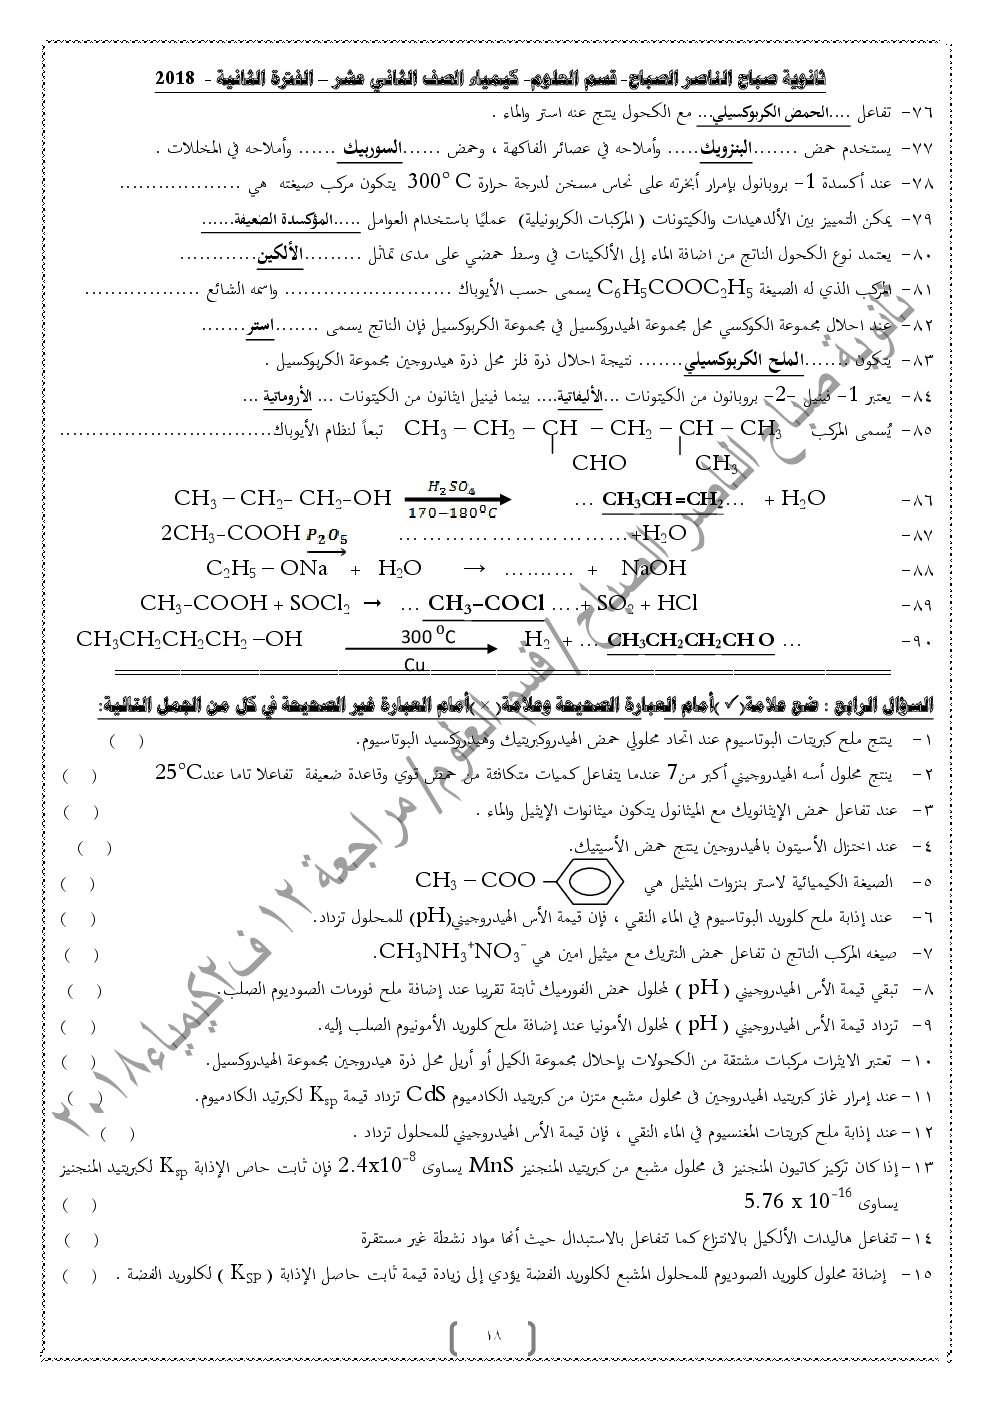 ثانوية صباح الناصر الصباح- قسم العلوم- كيمياء الصف الثاني عشر – الفترة الثانية - 2018
٧٦- تفاعل ....الحمض الكربوكسيلي... مع الكحول ينتج عنه استر والماء .
٧٧- يستخدم حمض .......البنزويك..... وأملاحه في عصائر الفاكهة ، وحمض ......السوربيك ...... وأملاحه في المخللات .
٧٨- عند أكسدة 1- بروبانول بإمرار أبخرته على نحاس مسخن لدرجة حرارة 300° C يتكون مركب صيغته هي ...................
٧٩- يمكن التمييز بين الألدهيدات والكيتونات ( المركبات الكربونيلية) عمليًا باستخدام العوامل .....المؤكسدة الضعيفة......
٨٠- يعتمد نوع الكحول الناتج من اضافة الماء إلى الألكينات في وسط حمضي على مدى تماثل .........الألكين............
٨١- المركب الذي له الصيغة C6H5COOC2H5 يسمى حسب الأيوباك .......................... واسمه الشائع ..................
٨٢- عند احلال مجموعة الكوكسي محل مجموعة الهيدروكسيل في مجموعة الكربوكسيل فإن الناتج يسمى .......استر.......
٨٣- يتكون .......الملح الكربوكسيلي....... نتيجة احلال ذرة فلز محل ذرة هيدروجين مجموعة الكربوكسيل .
٨٤- يعتبر 1- فينيل -2- بروبانون من الكيتونات ...الأليفاتية.... بينما فينيل ايثانون من الكيتونات ... الأروماتية ...
٨٥- يُسمى المركب CH3 – CH2 – CH – CH2 – CH – CH3 تبعاً لنظام الأيوباك.................................
CHO CH3
CH3 – CH2- CH2-OH H2SO4 170-180⁰C ... CH3CH=CH2... + H2O ٨٦-
2CH3-COOH P2O5 ..............................+H2O ٨٧-
C2H5 – ONa + H2O → .......... + NaOH ٨٨-
CH3-COOH + SOCl2 → ... CH3-COCl ....+ SO2 + HCl ٨٩-
CH3CH2CH2CH2 –OH 300 ⁰C Cu H2 + ... CH3CH2CH2CH O ... ٩٠-
السؤال الرابع : ضع علامة(✓)أمام العبارة الصحيحة وعلامة(×)أمام العبارة غير الصحيحة في كل من الجمل التالية:
١- ينتج ملح كبريتات البوتاسيوم عند اتحاد محلولي حمض الهيدروكبريتيك وهيدروكسيد البوتاسيوم. ( )
٢- ينتج محلول أسه الهيدروجيني أكبر من7 عندما يتفاعل كميات متكافئة من حمض قوي وقاعدة ضعيفة تفاعلا تاما عند25°C ( )
٣- عند تفاعل حمض الإيثانويك مع الميثانول يتكون ميثانوات الإيثيل والماء . ( )
٤- عند اختزال الأسيتون بالهيدروجين ينتج حمض الأسيتيك. ( )
٥- الصيغة الكيميائية لاستر بنزوات الميثيل هي CH3 – COO ( )
٦- عند إذابة ملح كلوريد البوتاسيوم في الماء النقي ، فإن قيمة الأس الهيدروجيني(pH) للمحلول تزداد. ( )
٧- صيغه المركب الناتج ن تفاعل حمض النتريك مع ميثيل امين هي CH3NH3⁺NO3⁻. ( )
٨- تبقي قيمة الأس الهيدروجيني ( pH ) لمحلول حمض الفورميك ثابتة تقريبا عند إضافة ملح فورمات الصوديوم الصلب. ( )
٩- تزداد قيمة الأس الهيدروجيني ( pH ) لمحلول الأمونيا عند إضافة ملح كلوريد الأمونيوم الصلب إليه. ( )
١٠- تعتبر الايثرات مركبات مشتقة من الكحولات بإحلال مجموعة الكيل أو أريل محل ذرة هيدروجين مجموعة الهيدروكسيل. ( )
١١- عند إمرار غاز كبريتيد الهيدروجين فى محلول مشبع متزن من كبريتيد الكادميوم CdS تزداد قيمة Ksp لكبرتيد الكادميوم. ( )
١٢- عند إذابة ملح كبريتات المغنسيوم في الماء النقي ، فإن قيمة الأس الهيدروجيني للمحلول تزداد . ( )
١٣- إذا كان تركيز كاتيون المنجنيز فى محلول مشبع من كبريتيد المنجنيز MnS يساوى 2.4x10⁻⁸ فإن ثابت حاص الإذابة Ksp لكبريتيد المنجنيز
يساوى 5.76 x 10⁻¹⁶ ( )
١٤- تتفاعل هاليدات الألكيل بالانتزاع كما تتفاعل بالاستبدال حيث أنها مواد نشطة غير مستقرة ( )
١٥- إضافة محلول كلوريد الصوديوم للمحلول المشبع لكلوريد الفضة يؤدي إلى زيادة قيمة ثابت حاصل الإذابة ( KSP ) لكلوريد الفضة . ( )
١٨
ثانوية صباح الناصر الصباح / قسم العلوم / مراجعة ١٢ ف٢كيمياء٢٠١٨